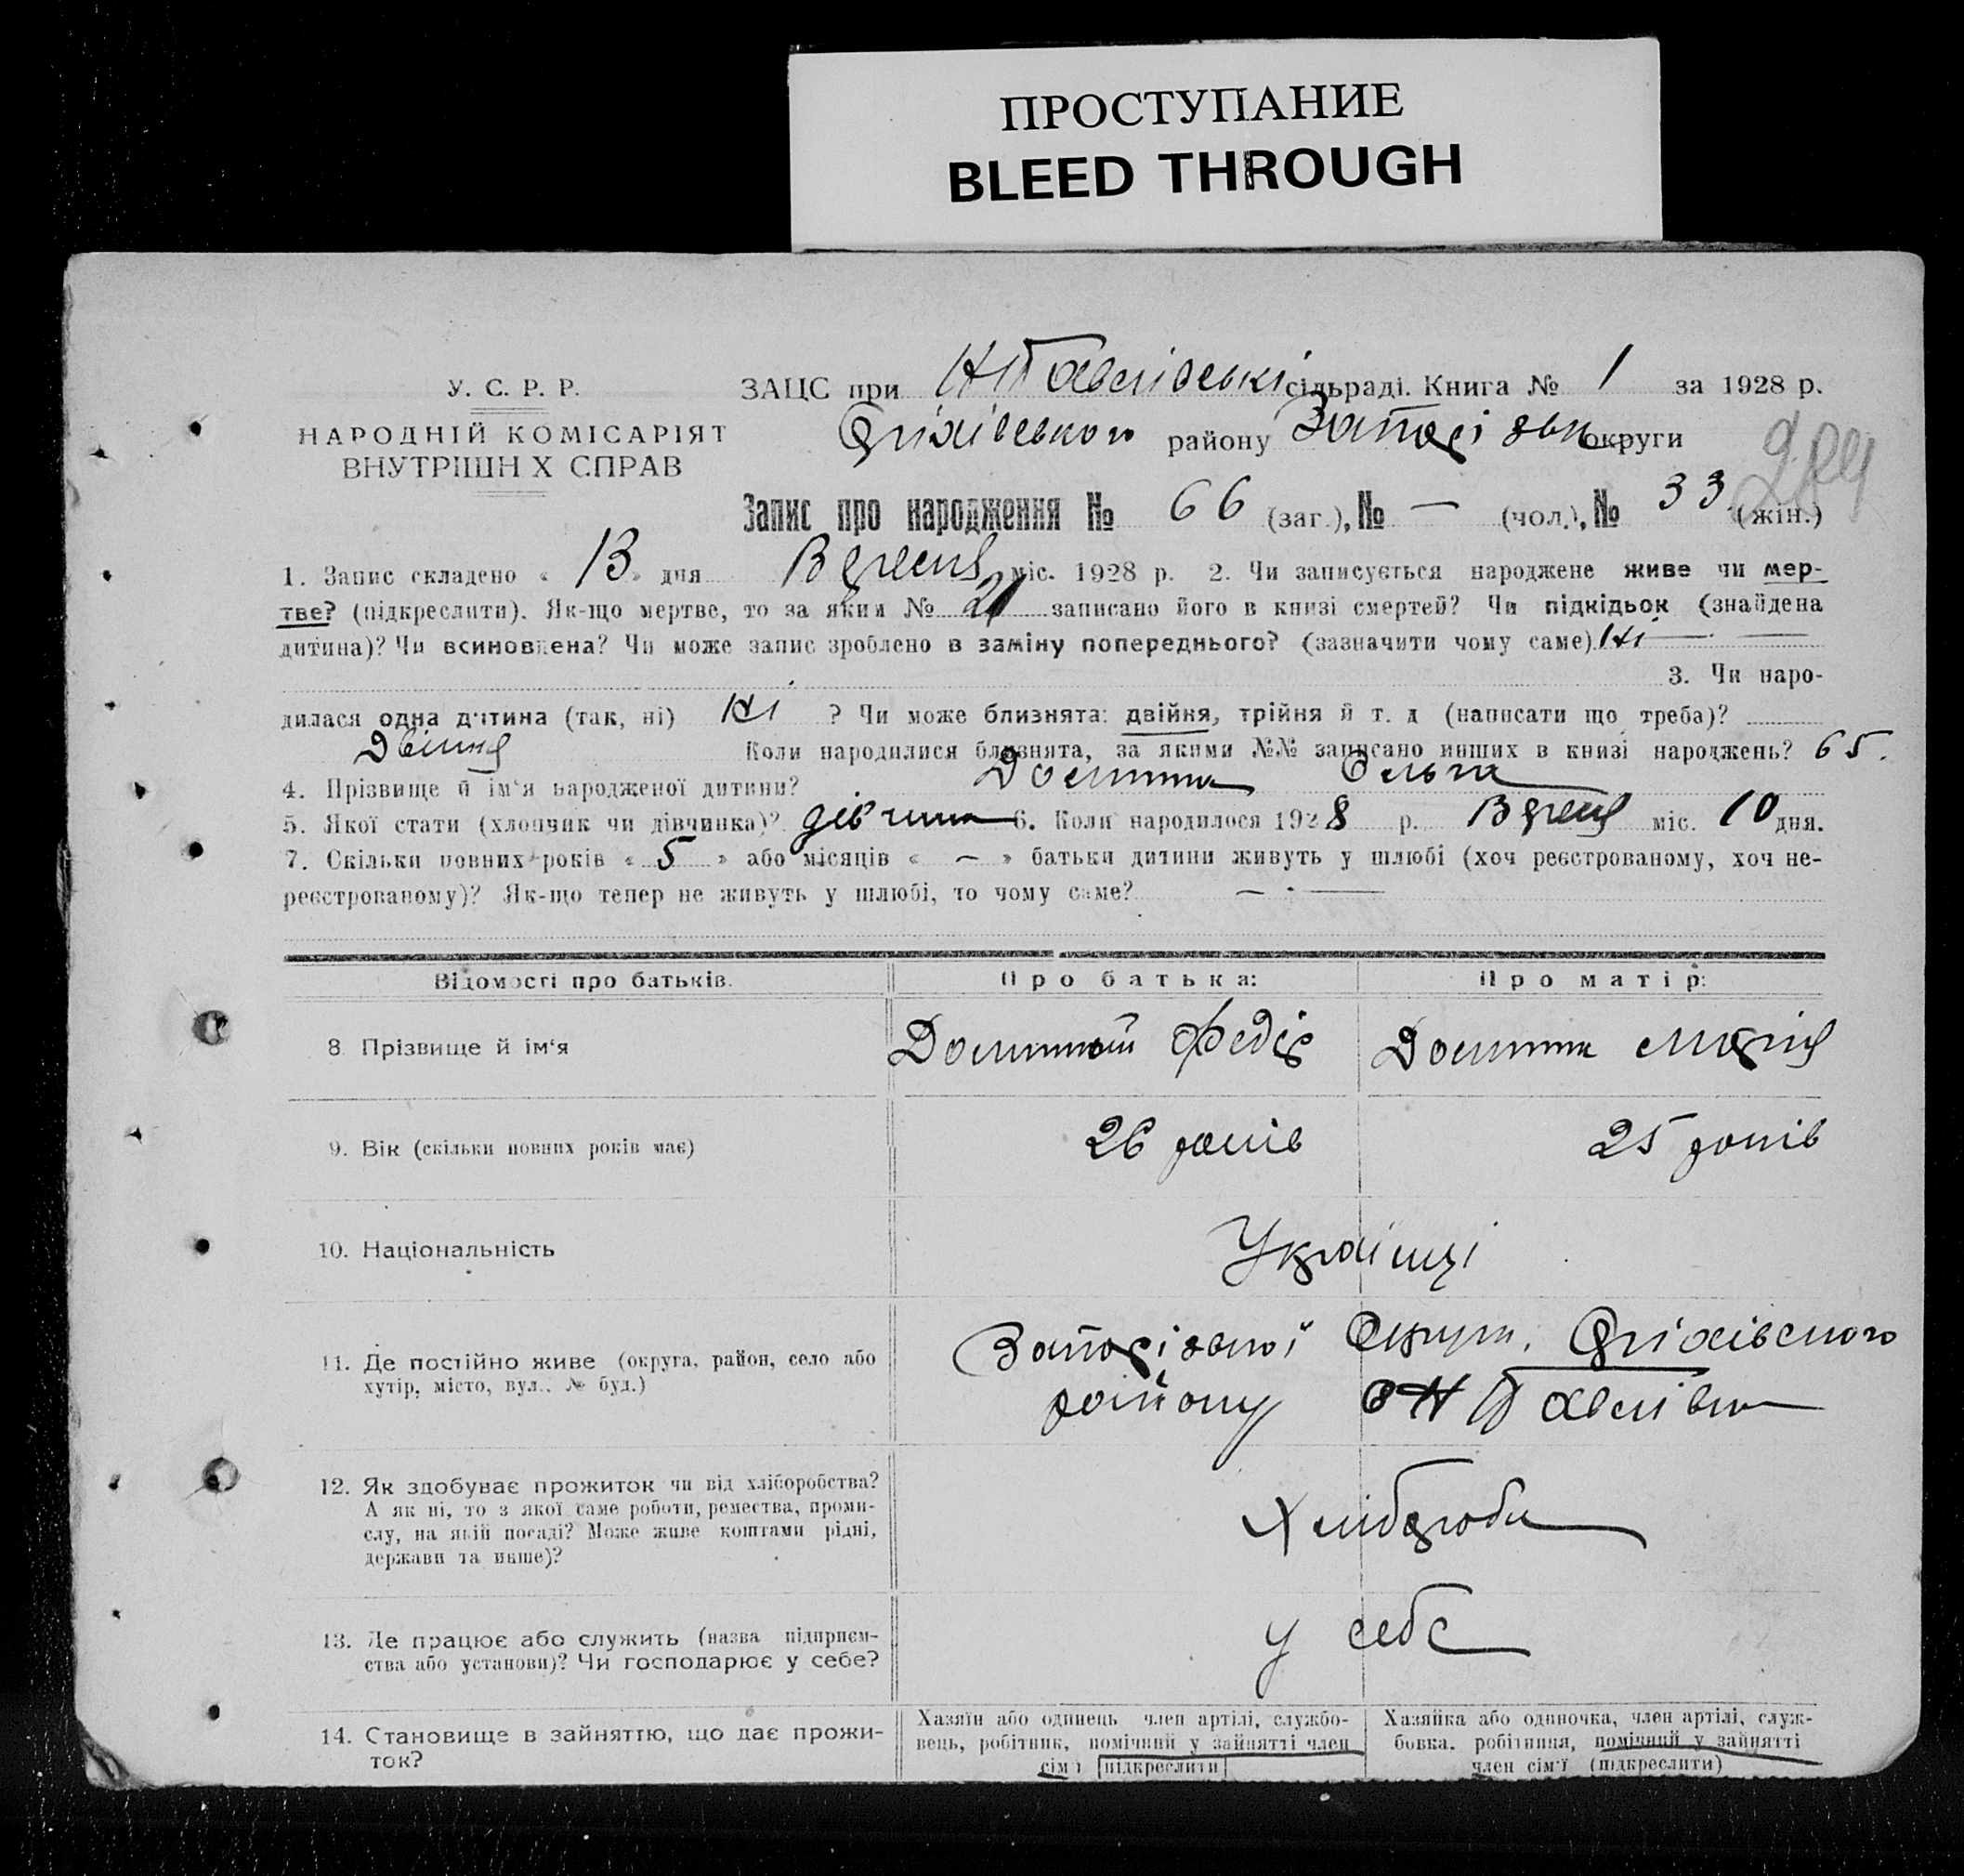 ПРОСТУПАНИЕ
BLEED THROUGH
У. С. Р. Р.
НАРОДНІЙ КОМІСАРІЯТ
ВНУТРІШН Х СПРАВ
ЗАЦС при Н Павлівські сільраді. Книга № 1 за 1928 р.
Оріхівського району Запорізьк округи
Запис про народження № 66 (заг.), № — (чол.), № 33 (жін.)
1. Запис складено « 13 » дня Вересня міс. 1928 р. 2. Чи записується народжене живе чи мер-
тве? (підкреслити). Як-що мертве, то за яким № 21 записано його в книзі смертей? Чи підкідьок (знайдена
дитина)? Чи всиновлена? Чи може запис зроблено в заміну попереднього? (зазначити чому саме) Ні
3. Чи наро-
дилася одна дитина (так, ні) Ні ? Чи може близнята: двійня, трійня й т. д (написати що треба)?
Двійня Коли народилися близнята, за якими №№ записано инших в книзі народжень? 65.
4. Прізвище й ім'я народженої дитини? Ольга
5. Якої стати (хлопчик чи дівчинка)? дівчинка 6. Коли народилося 1928 р. Вересня міс. 10 дня.
7. Скільки повних років « 5 » або місяців « — » батьки дитини живуть у шлюбі (хоч реєстрованому, хоч не-
реєстрованому)? Як-що тепер не живуть у шлюбі, то чому саме? —
Відомості про батьків. Про батька: Про матір:
8 Прізвище й ім'я Федір Марія
9. Вік (скільки повних років має) 26 років 25 років
10. Національність Українці
11. Де постійно живе (округа, район, село або
хутір, місто, вул., № буд.)
Запорізької Округи, Оріхівського
району с Н Павлівка
12. Як здобуває прожиток чи від хліборобства?
А як ні, то з якої саме роботи, ремества, проми-
слу, на якій посаді? Може живе коштами рідні,
держави та инше)?
Хлібороби
13. Де працює або служить (назва підприєм-
ства або установи)? Чи господарює у себе?
у себе
14. Становище в зайняттю, що дає прожи-
ток?
Хазяїн або одинець член артілі, службо-
вець, робітник, помічний у зайнятті член
сім'ї (підкреслити)
Хазяйка або одиночка, член артілі, служ-
бовка, робітниця, помічний у зайнятті
член сім'ї (підкреслити)